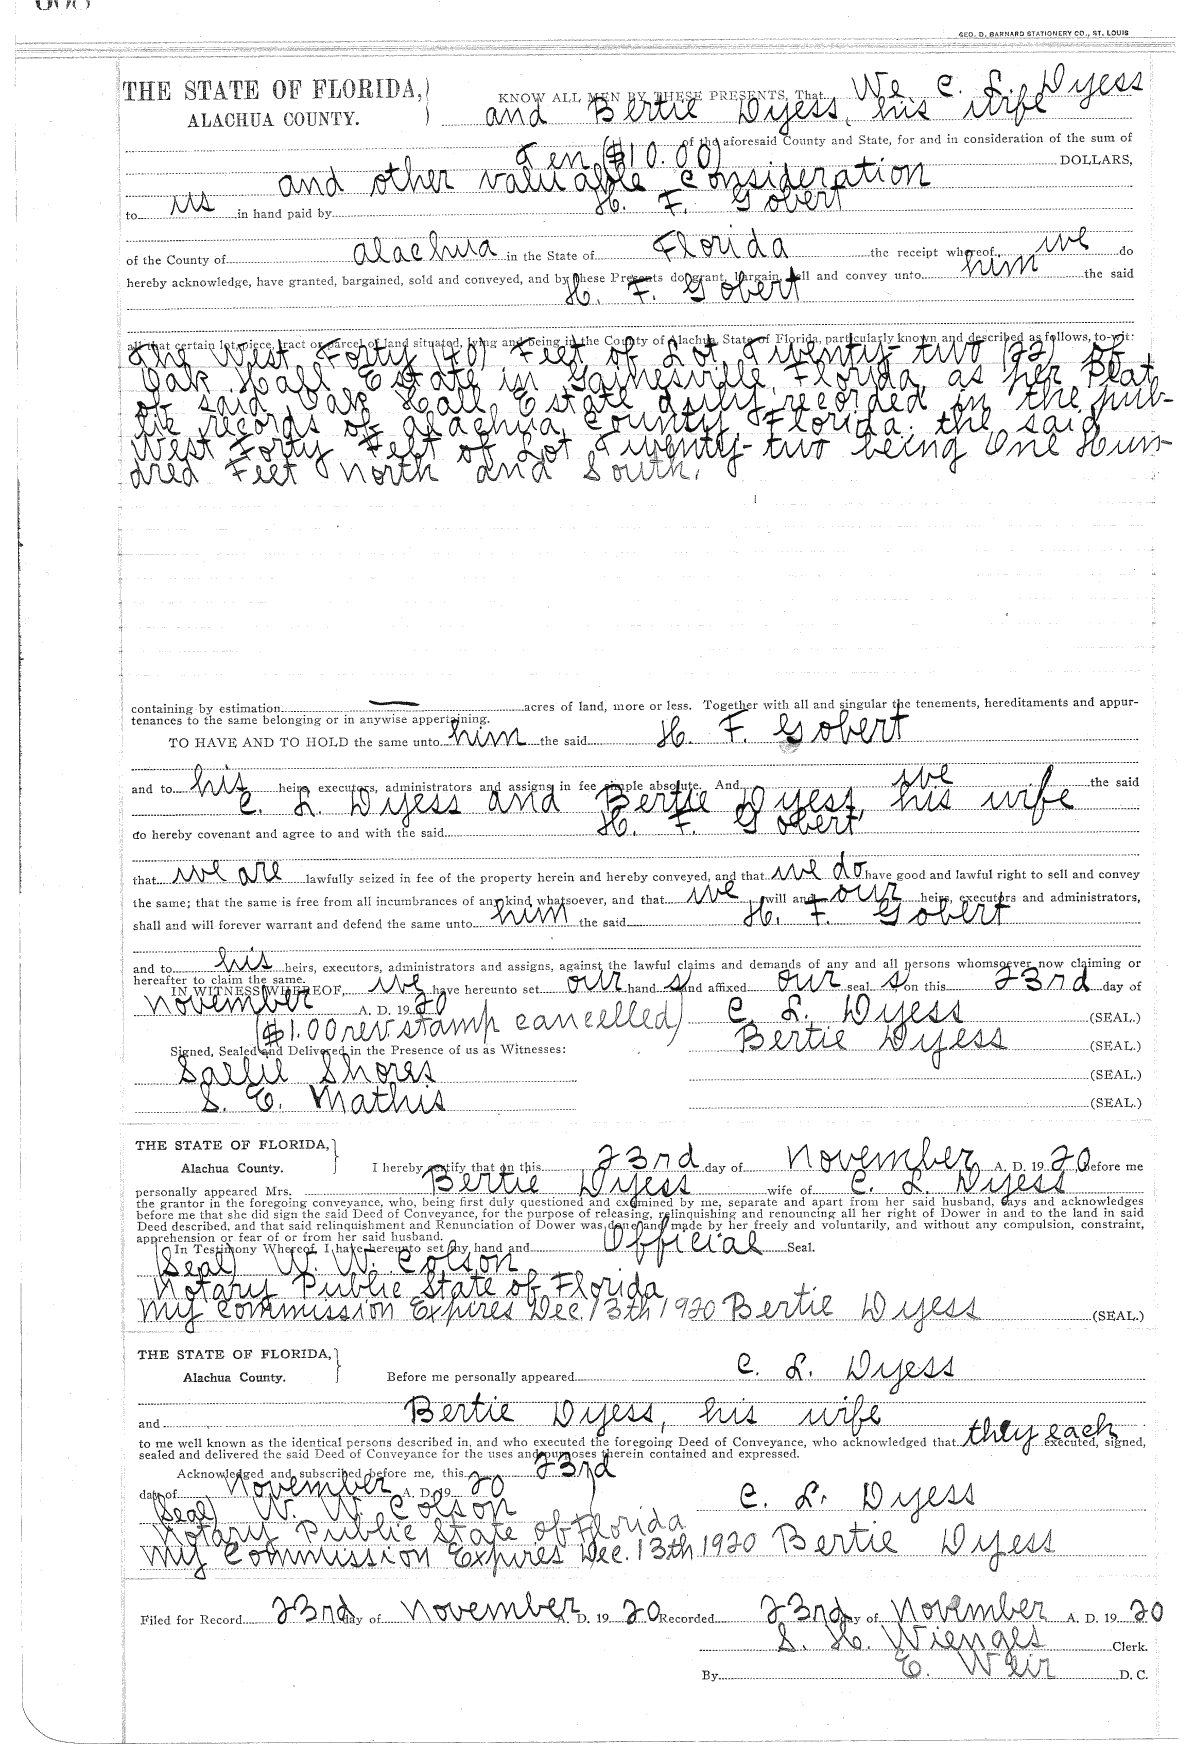 GEO. D. BARNARD STATIONERY CO., ST. LOUIS
THE STATE OF FLORIDA, KNOW ALL MEN BY THESE PRESENTS, That We C. L. Dyess
ALACHUA COUNTY. and Bertie Dyess, his wife
of the aforesaid County and State, for and in consideration of the sum of
Ten ($10.00) DOLLARS,
and other valuable consideration
to us in hand paid by H. F. Gobert
of the County of Alachua in the State of Florida the receipt whereof we do
hereby acknowledge, have granted, bargained, sold and conveyed, and by these Presents do grant, bargain, sell and convey unto him the said
H. F. Gobert
all that certain lot, piece, tract or parcel of land situated, lying and being in the County of Alachua, State of Florida, particularly known and described as follows, to-wit:
The West Forty (40) Feet of Lot Twenty-two (22) of
Oak Hall Estate in Gainesville, Florida, as per Plat
of said Oak Hall Estate duly recorded in the pub-
lic records of Alachua County Florida. the said
West Forty Feet of Lot Twenty-two being One Hun-
dred Feet North and South.
containing by estimation — acres of land, more or less. Together with all and singular the tenements, hereditaments and appur-
tenances to the same belonging or in anywise appertaining.
TO HAVE AND TO HOLD the same unto him the said H. F. Gobert
and to his heirs, executors, administrators and assigns in fee simple absolute. And we the said
C. L. Dyess and Bertie Dyess, his wife
do hereby covenant and agree to and with the said H. F. Gobert,
that we are lawfully seized in fee of the property herein and hereby conveyed, and that we do have good and lawful right to sell and convey
the same; that the same is free from all incumbrances of any kind whatsoever, and that we will and our heirs, executors and administrators,
shall and will forever warrant and defend the same unto him the said H. F. Gobert
and to his heirs, executors, administrators and assigns, against the lawful claims and demands of any and all persons whomsoever now claiming or
hereafter to claim the same.
IN WITNESS WHEREOF, we have hereunto set our hand s and affixed our seal s on this 23rd day of
November A. D. 19 20 C. L. Dyess (SEAL.)
($1.00 rev. stamp cancelled) Bertie Dyess (SEAL.)
Signed, Sealed and Delivered in the Presence of us as Witnesses:
Sallie Shores (SEAL.)
S. E. Mathis (SEAL.)
THE STATE OF FLORIDA,
Alachua County. I hereby certify that on this 23rd day of November A. D. 19 20 Before me
personally appeared Mrs. Bertie Dyess wife of C. L. Dyess
the grantor in the foregoing conveyance, who, being first duly questioned and examined by me, separate and apart from her said husband, says and acknowledges
before me that she did sign the said Deed of Conveyance, for the purpose of releasing, relinquishing and renouncing all her right of Dower in and to the land in said
Deed described, and that said relinquishment and Renunciation of Dower was done and made by her freely and voluntarily, and without any compulsion, constraint,
apprehension or fear of or from her said husband.
In Testimony Whereof, I have hereunto set my hand and Official Seal.
(Seal) W. W. Colson
Notary Public State of Florida
My Commission Expires Dec. 13th 1920 Bertie Dyess (SEAL.)
THE STATE OF FLORIDA,
Alachua County. Before me personally appeared C. L. Dyess
and Bertie Dyess, his wife
to me well known as the identical persons described in, and who executed the foregoing Deed of Conveyance, who acknowledged that they each executed, signed,
sealed and delivered the said Deed of Conveyance for the uses and purposes therein contained and expressed.
Acknowledged and subscribed before me, this 23rd
day of November A. D. 19 20
(Seal) W. W. Colson C. L. Dyess
Notary Public State of Florida
My Commission Expires Dec. 13th 1920 Bertie Dyess
Filed for Record 23rd day of November D. 19 20 Recorded 23rd day of November A. D. 19 20
S. H. Wienges Clerk.
By E. Weir D. C.